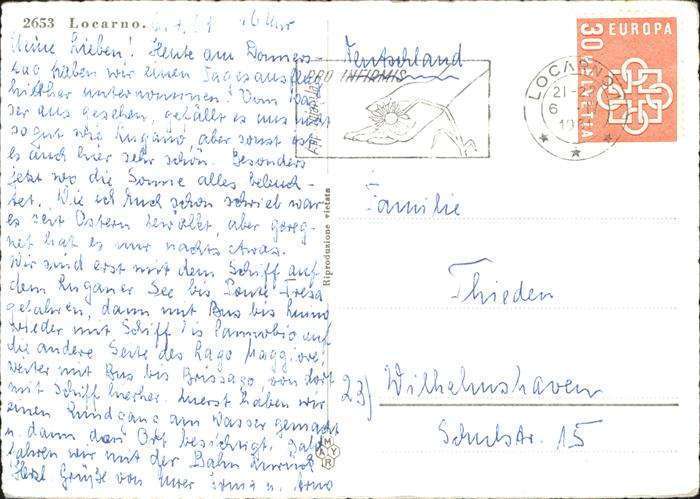 2653 Locarno.
Meine Lieben! Heute am Donners-
tag haben wir einen Tagesausflug
hierher unternommen! Vom Was-
ser aus gesehen, gefällt es uns nicht
so gut wie Lugano, aber sonst ist
es auch hier sehr schön. Besonders
jetzt wo die Sonne alles beleuch-
tet. Wie ich Euch schon schrieb war
es seit Ostern bewölkt, aber gereg-
net hat es nur nachts etwas.
Wir sind erst mit dem Schiff auf
dem Luganer See bis Ponte Tresa
gefahren, dann mit Bus bis Luino
wieder mit Schiff bis Cannobio auf
die andere Seite des Lago Maggiore
weiter mit Bus bis Brissago, von dort
mit Schiff hierher. Zuerst haben wir
einen Rundgang am Wasser gemacht
u. dann den Ort besichtigt. Bald
fahren wir mit der Bahn zurück.
Herzl. Grüße von Eurer Erna u. Arno
Riproduzione vietata
MAYR
Deutschland
PRO INFIRMIS
LOCARNO
21-
6
EUROPA
30
HELVETIA
Familie
Thieden
23) Wilhelmshaven
Schulstr. 15